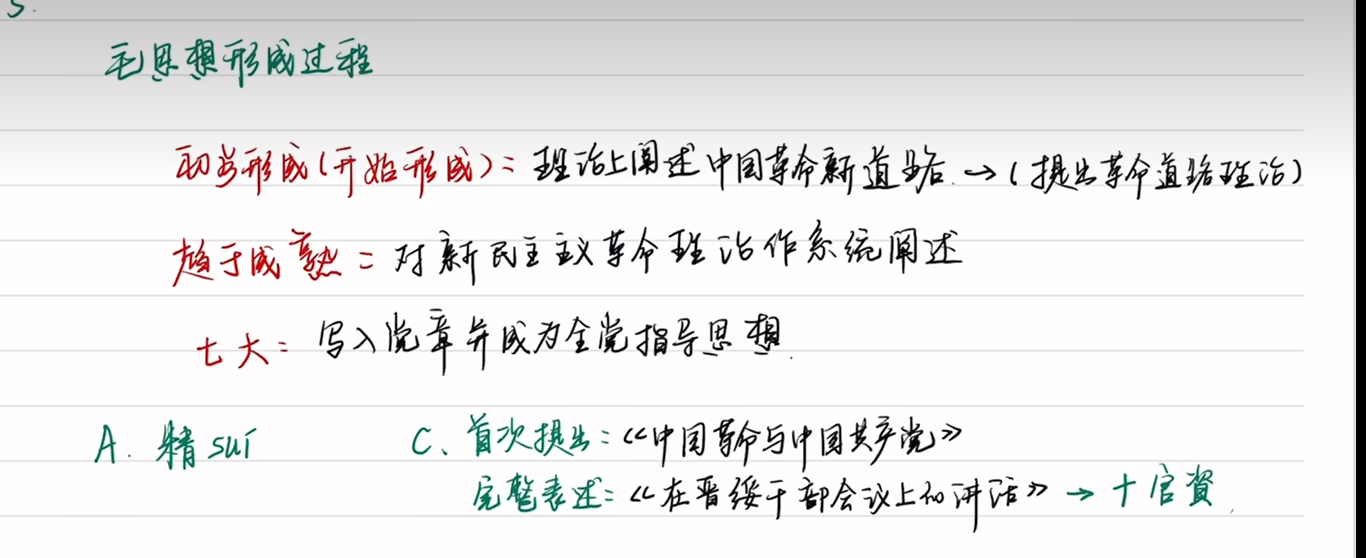 5.
毛思想形成过程
初步形成(开始形成): 理论上阐述中国革命新道路. → (提出革命道路理论)
趋于成熟: 对新民主主义革命理论作系统阐述
七大: 写入党章并成为全党指导思想.
A. 精suǐ C、首次提出:《中国革命与中国共产党》
完整表述:《在晋绥干部会议上的讲话》→ +官资.